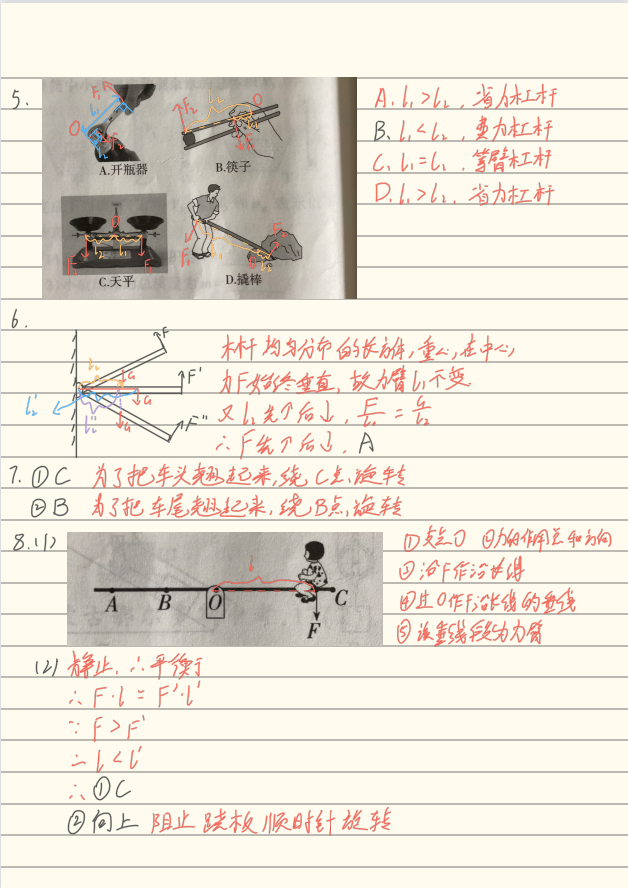 5.
A.开瓶器
B.筷子
C.天平
D.撬棒
A. l₁>l₂, 省力杠杆
B. l₁<l₂, 费力杠杆
C. l₁=l₂, 等臂杠杆
D. l₁>l₂, 省力杠杆
6.
木杆均匀分布的长方体,重心在中心,
力F始终垂直,故力臂l₁不变
又l₂先↑后↓,
∴F先↑后↓. A
7. ①C 为了把车头翘起来,绕C点旋转
②B 为了把车尾翘起来,绕B点旋转
8.(1)
A B O C
F
①支点O ②力的作用点和方向
③沿F作延长线
④过O作F延长线的垂线
⑤该垂线段为力臂
(2) 静止,∴平衡
∴F·l=F'·l'
∵F>F'
∴l<l'
∴①C
②向上 阻止跷板顺时针旋转